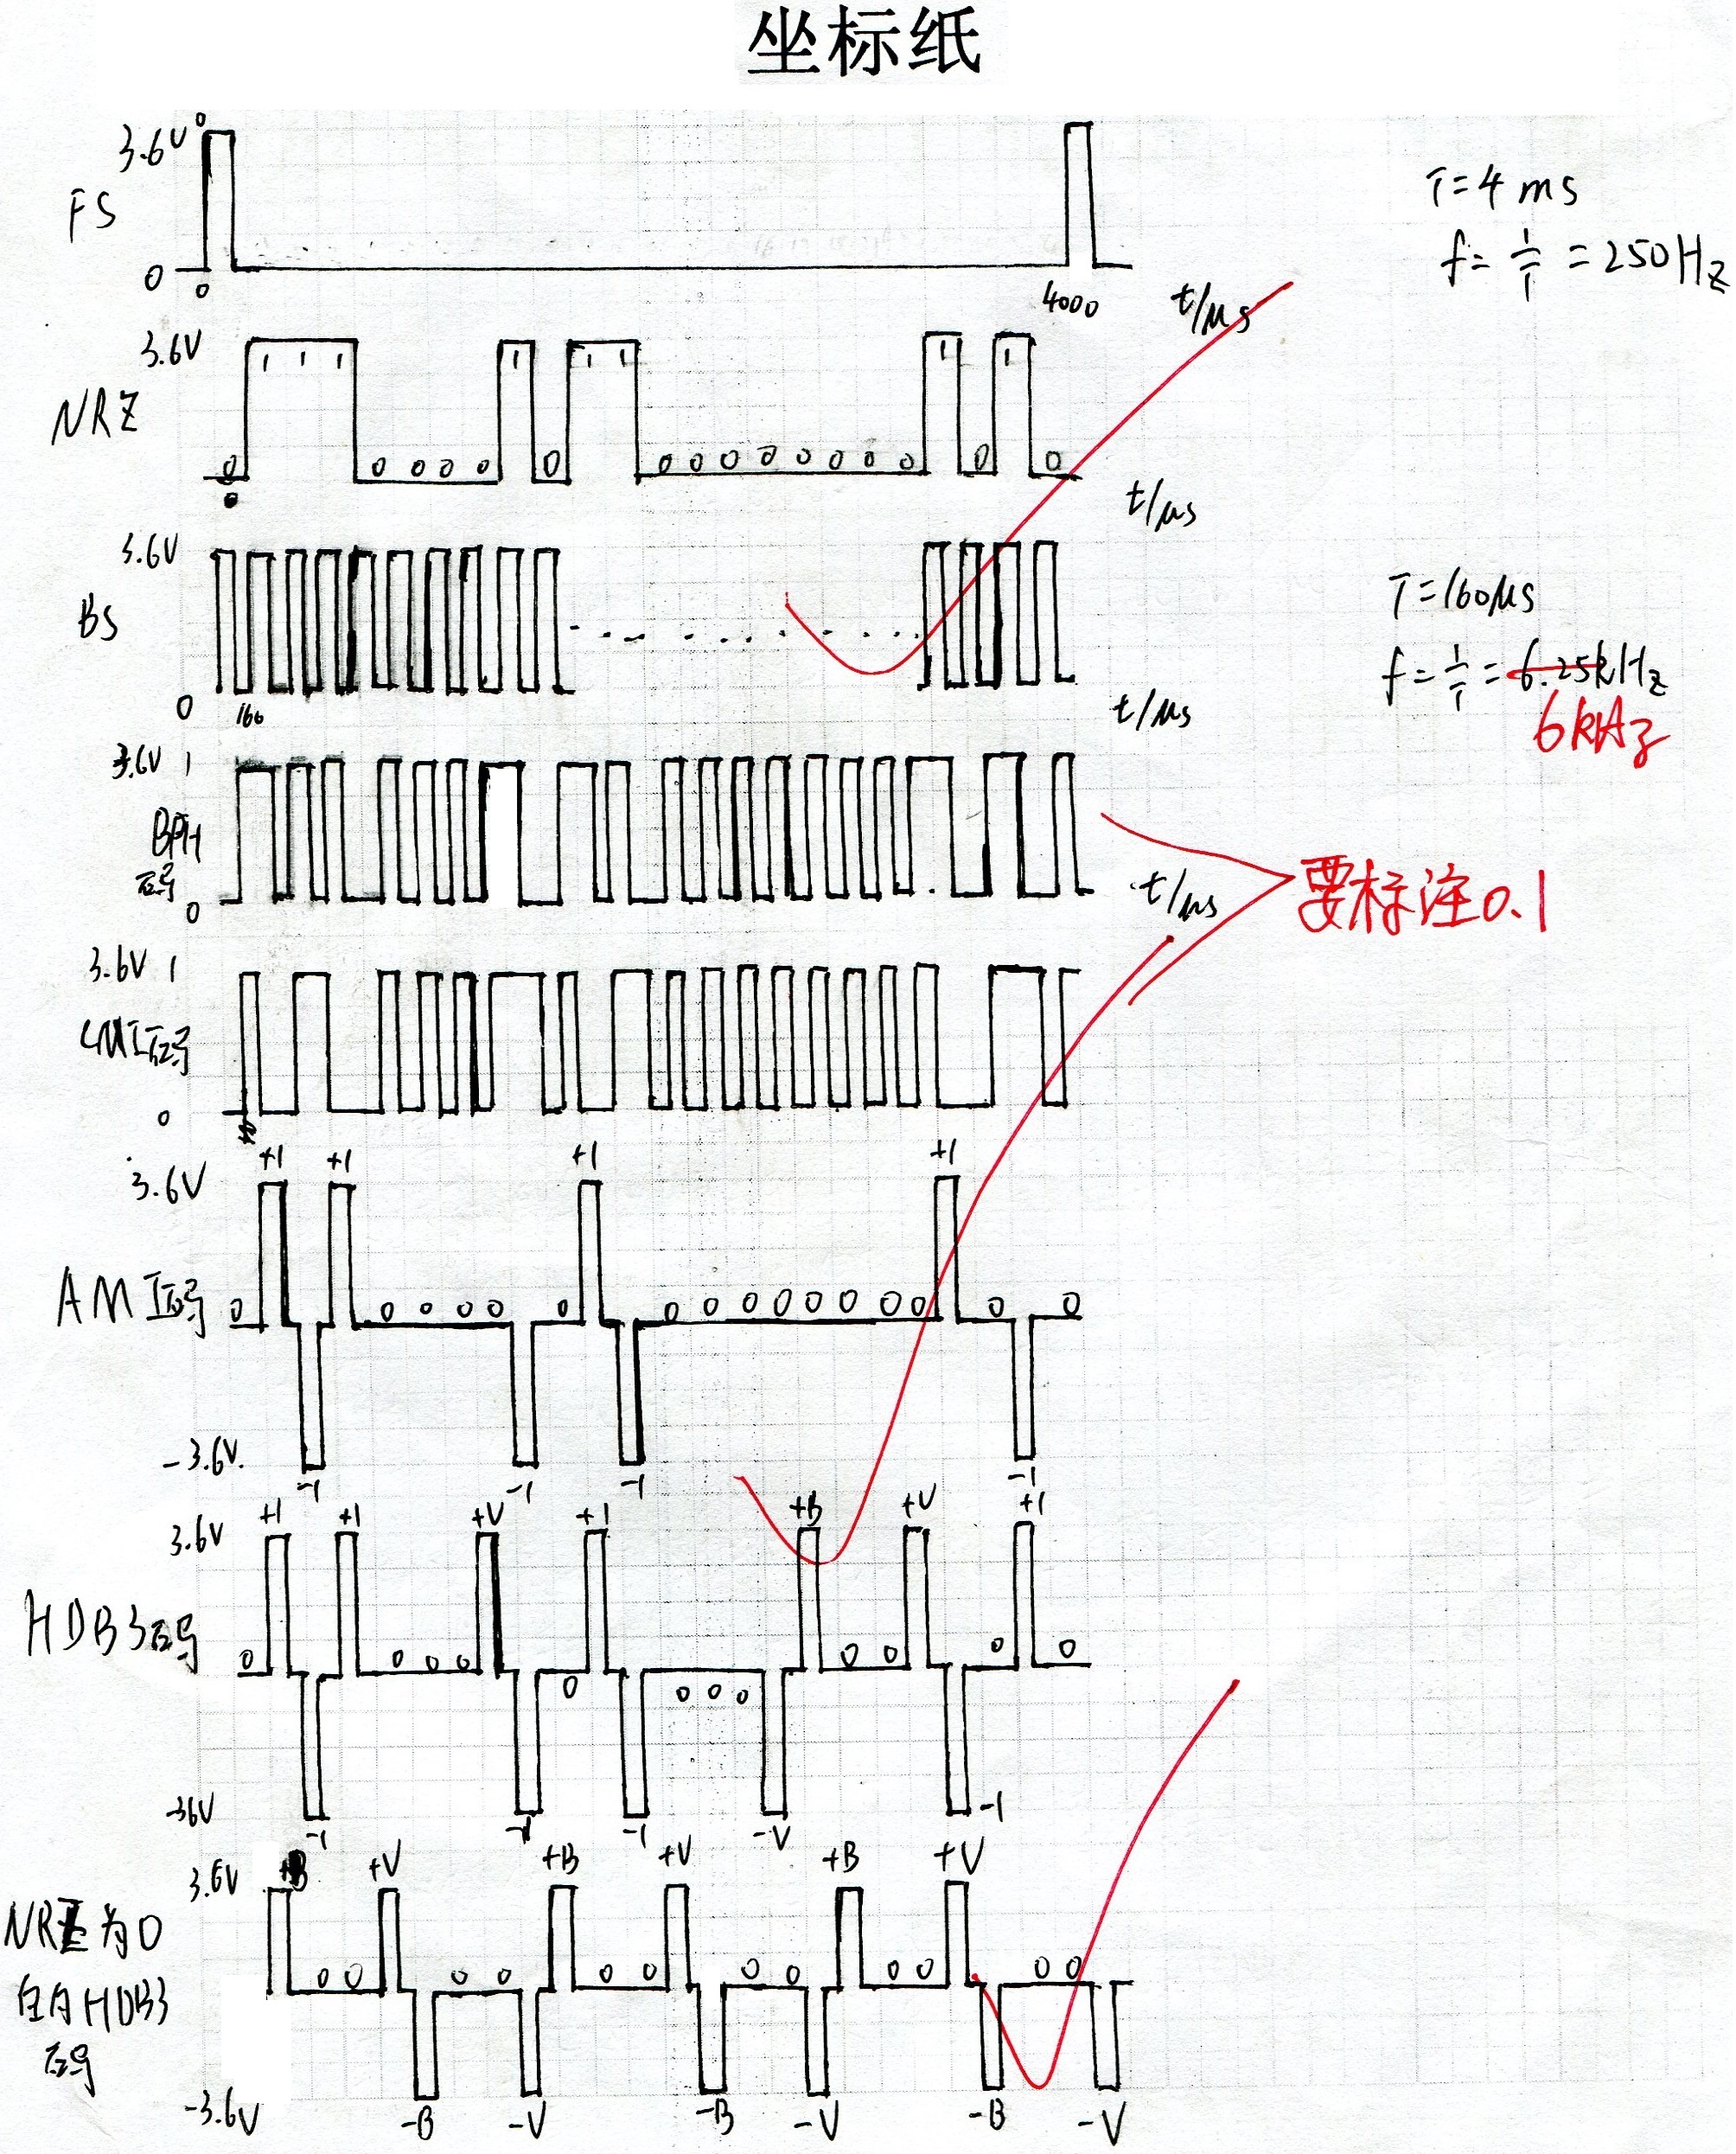 坐标纸
3.6V
FS
0
0
4000
t/μs
T=4ms
f=1/T=250Hz
3.6V
NRZ
0 1 1 1 0 0 0 0 1 0 1 1 0 0 0 0 0 0 0 0 1 0 1 0
0
t/μs
3.6V
BS
0
160
t/μs
T=160μs
f=1/T=6.25kHz
6kHz
3.6V 1
BPH
码
0
t/μs
要标注0.1
3.6V 1
CMI码
0
+1 +1 +1 +1
3.6V
AMI码
0 0 0 0 0 0 0 0 0 0 0 0 0 0 0 0
-3.6V
-1 -1 -1 -1
+1 +1 +V +1 +B +V +1
3.6V
HDB3码
0 0 0 0 0 0 0 0 0 0 0 0
-36V
-1 -1 -1 -V -1
+B +V +B +V +B +V
3.6V
NRZ为0
0 0 0 0 0 0 0 0 0 0 0 0
HDB3
码
-3.6V
-B -V -B -V -B -V